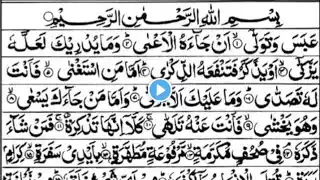 بِسْمِ اللهِ الرَّحْمٰنِ الرَّحِيْمِ
عَبَسَ وَتَوَلّٰٓى ۙ اَنْ جَآءَهُ الْاَعْمٰى ؕ وَمَا يُدْرِيْكَ لَعَلَّهٗ
يَزَّكّٰٓى ۙ اَوْ يَذَّكَّرُ فَتَنْفَعَهُ الذِّكْرٰى ؕ اَمَّا مَنِ اسْتَغْنٰى ۙ فَاَنْتَ
لَهٗ تَصَدّٰى ؕ وَمَا عَلَيْكَ اَلَّا يَزَّكّٰى ؕ وَاَمَّا مَنْ جَآءَكَ يَسْعٰى ۙ
وَهُوَ يَخْشٰى ۙ فَاَنْتَ عَنْهُ تَلَهّٰى ۚ كَلَّآ اِنَّهَا تَذْكِرَةٌ ۚ فَمَنْ شَآءَ
ذَكَرَهٗ ۘ فِيْ صُحُفٍ مُّكَرَّمَةٍ ۙ مَّرْفُوْعَةٍ مُّطَهَّرَةٍ ۙ بِاَيْدِيْ سَفَرَةٍ ۙ كِرَامٍ